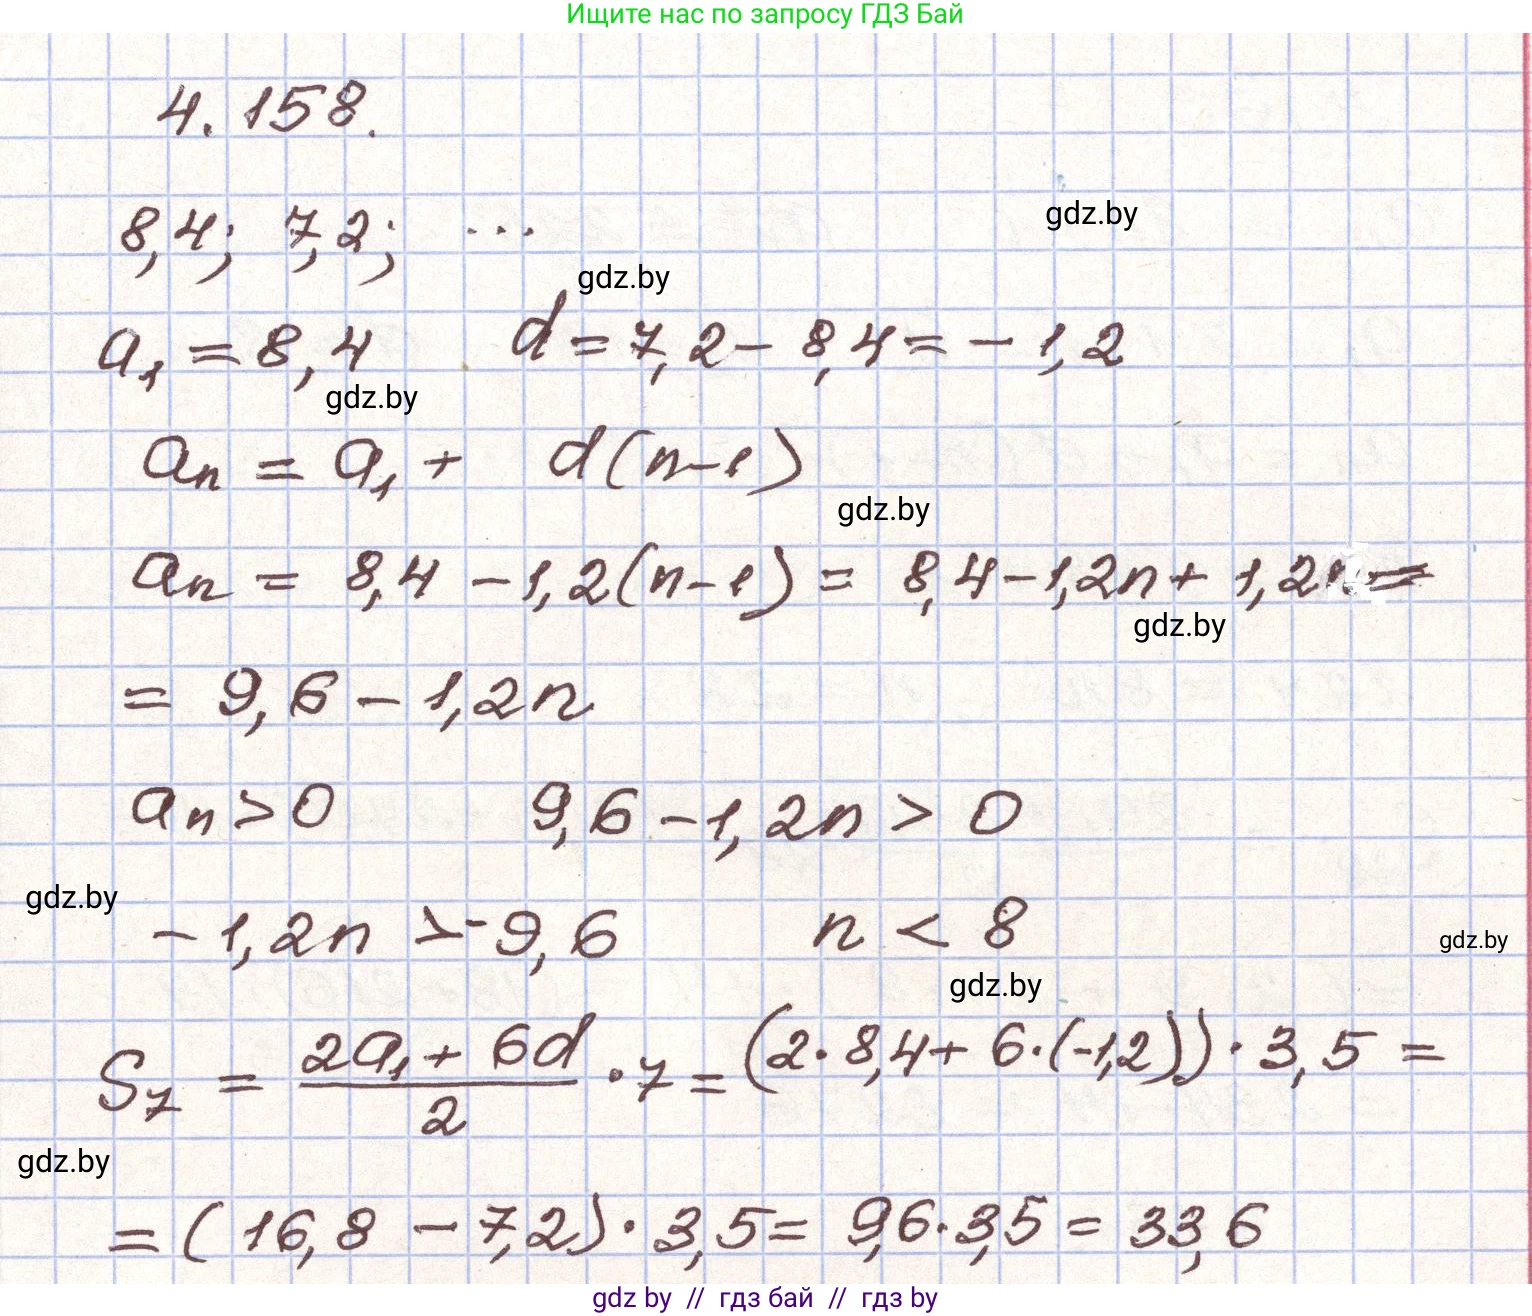 Ищите нас по запросу ГДЗ Бай
4.158.
8,4; 7,2; ...
gdz.by
gdz.by
a₁ = 8,4 d = 7,2 - 8,4 = - 1,2
gdz.by
aₙ = a₁ + d(n-1)
gdz.by
aₙ = 8,4 - 1,2(n-1) = 8,4 - 1,2n + 1,2 =
gdz.by
= 9,6 - 1,2n
aₙ > 0 9,6 - 1,2n > 0
gdz.by
- 1,2n > -9,6 n < 8
gdz.by
gdz.by
S₇ = (2a₁ + 6d)/2 · 7 = (2·8,4 + 6·(-1,2)) · 3,5 =
gdz.by
= (16,8 - 7,2) · 3,5 = 9,6 · 3,5 = 33,6
gdz by // гдз бай // гдз by